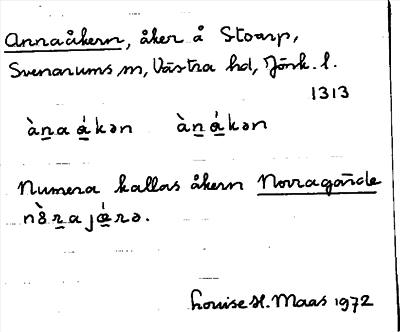 Annaåkern, åker å Stoarp,
Svenarums sn, Västra hd, Jönk. l.
1313
àn̲a ǻ̲kən àn̲ǻ̲kən
Numera kallas åkern Norragärde
nò̤r̲ajá̲rə.
Louise H. Maas 1972